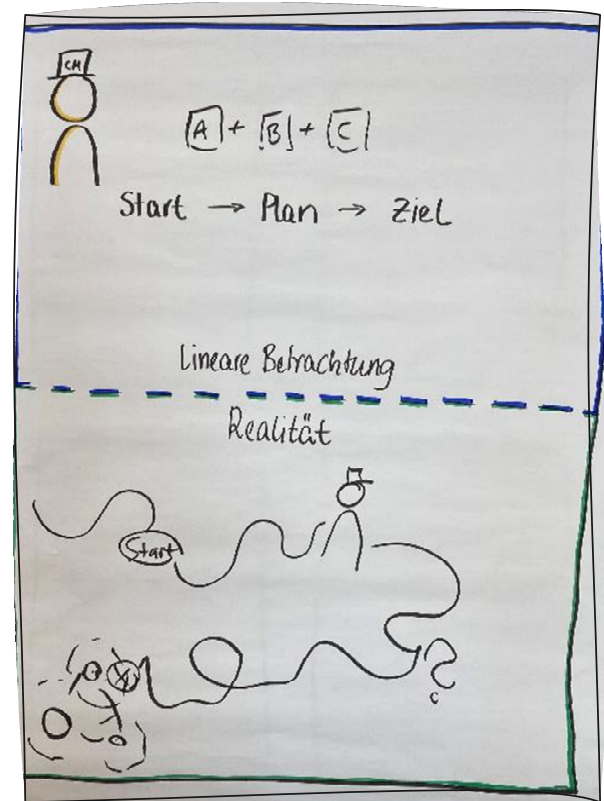 CH
A + B + C
Start → Plan → Ziel
Lineare Betrachtung
Realität
Start
?